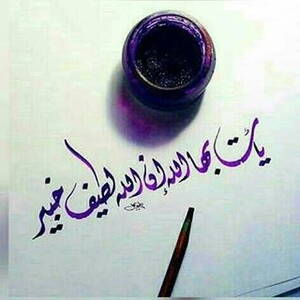 يأت بها الله إن الله لطيف خبير